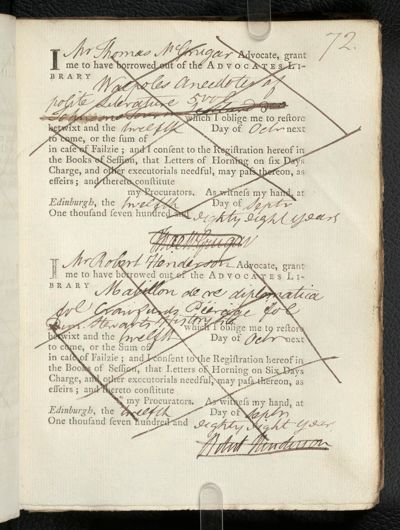 72.
I Mr Thomas McGrugar Advocate, grant
me to have borrowed out of the ADVOCATES LI-
BRARY
Walpoles Anecdotes of
polite Literature 5 vols
which I oblige me to restore
betwixt and the twelfth Day of Octr next
to come, or the sum of
in case of Failzie; and I consent to the Registration hereof in
the Books of Session, that Letters of Horning on six Days
Charge, and other executorials needful, may pass thereon, as
effeirs; and thereto constitute
my Procurators. As witness my hand, at
Edinburgh, the twelfth Day of Septr
One thousand seven hundred and eighty eight years
Tho McGrugar
I Mr Robert Henderson Advocate, grant
me to have borrowed out of the ADVOCATES LI-
BRARY
Mabillon de re diplomatica
fol Crawfurds Peerage fol
Stewarts History
which I oblige me to restore
betwixt and the twelfth Day of Octr next
to come, or the Sum of
in case of Failzie; and I consent to the Registration hereof in
the Books of Session, that Letters of Horning on Six Days
Charge, and other executorials needful, may pass thereon, as
effeirs; and thereto constitute
my Procurators. As witness my hand, at
Edinburgh, the twelfth Day of Septr
One thousand seven hundred and eighty eight years
Robert Henderson